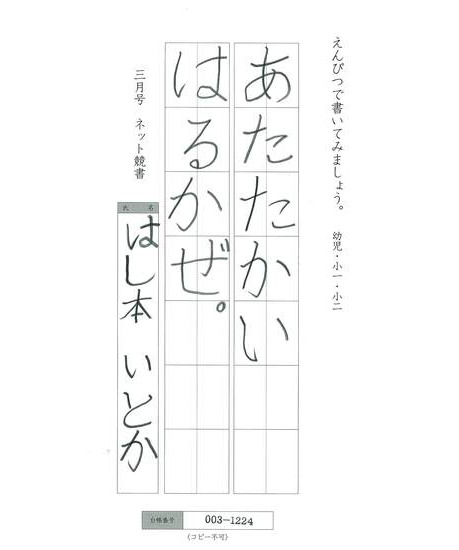 えんぴつで書いてみましょう。 幼児・小一・小二
あたたかい
はるかぜ。
三月号 ネット競書
氏名
はし本 いとか
台帳番号 003-1224
(コピー不可)